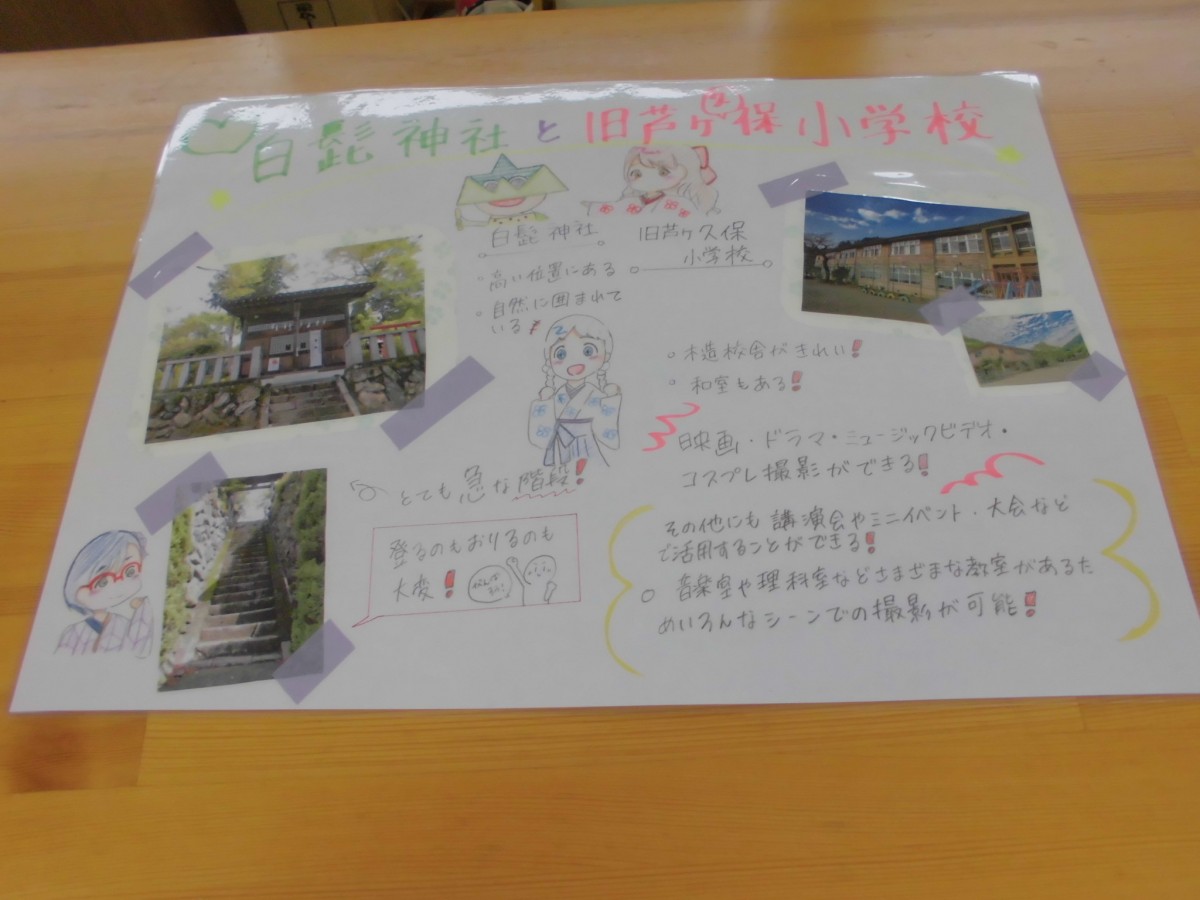 白髭神社と旧芦ヶ久保小学校
白髭神社
○高い位置にある
○自然に囲まれて
いる!
とても急な階段!
登るのもおりるのも
大変!
がんばれ!
旧芦ヶ久保
小学校
○木造校舎がきれい!
○和室もある!
映画・ドラマ・ミュージックビデオ・
コスプレ撮影ができる!
その他にも講演会やミニイベント・大会など
で活用することができる!
○音楽室や理科室などさまざまな教室があるた
めいろんなシーンでの撮影が可能!